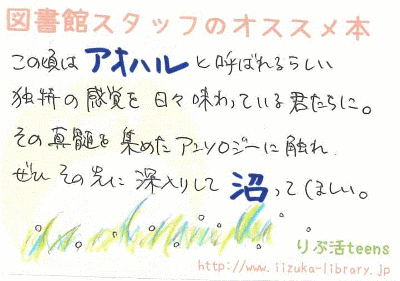 図書館スタッフのオススメ本
この頃は アオハル と呼ばれるらしい
独特の感覚を日々味わっている君たちに。
その真髄を集めたアンソロジーに触れ
ぜひ その先に 深入りして 沼ってほしい。
りぶ活teens
http://www.iizuka-library.jp